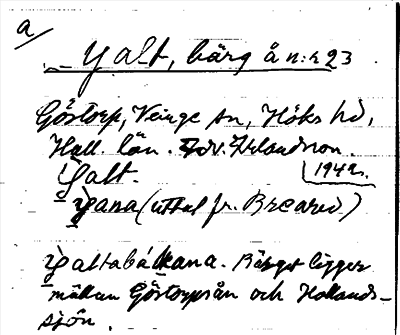 a/
Yalt, bärg å n:r 23
Göstorp, Veinge sn, Höks hd,
Hall. län. Edv. Erlandson.
Yalt. 1949.
Yana (uttal fr. Breared)
Yaltabackana. Bärget ligger
mellan Göstorpsån och Hollands-
sjön.